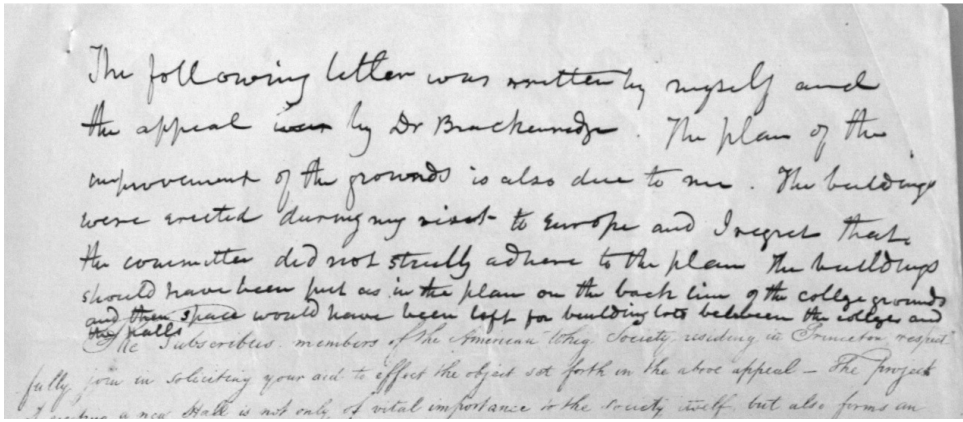 The following letter was written by myself and
the appeal was by Dr Brackenridge. The plan of the
improvement of the grounds is also due to me. The buildings
were erected during my visit to Europe and I regret that
the committee did not strictly adhere to the plan The buildings
should have been put as in the plan on the back line of the college grounds
and then space would have been left for building lots between the colleges and
halls
The Subscribers, members of the American Whig Society, residing in Princeton, respect
fully join in soliciting your aid to effect the object set forth in the above appeal — The project
a new Hall is not only of vital importance to the society itself, but also forms an